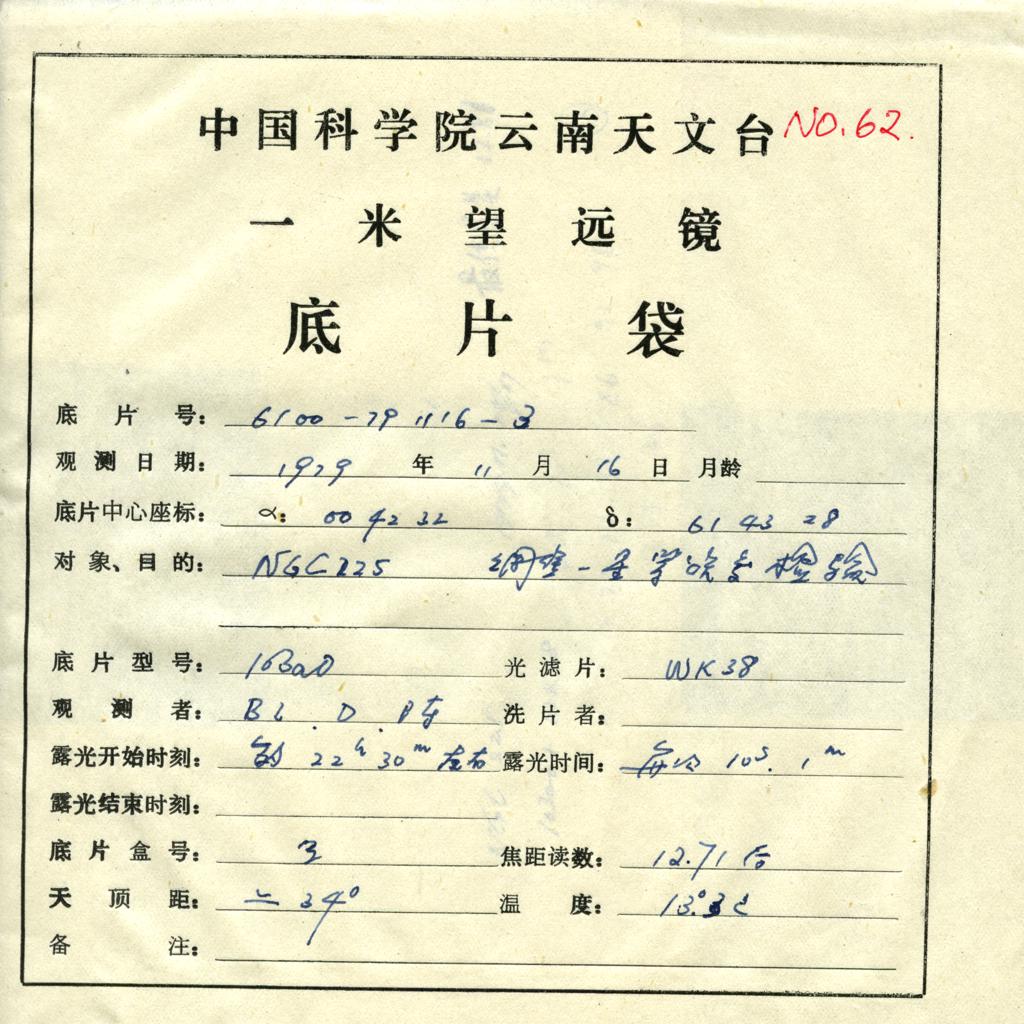 中国科学院云南天文台 NO.62.
一米望远镜
底片袋
底片号: 6100-791116-3
观测日期: 1979 年 11 月 16 日 月龄
底片中心座标: α: 00 42 32 δ: 61 43 28
对象、目的: NGC225 调整-星学院差检验
底片型号: 103aO 光滤片: WK38
观测者: BL. D. 陈 洗片者:
露光开始时刻: 22h 30m 左右 露光时间: 10s. 1m
露光结束时刻:
底片盒号: 3 焦距读数: 12.71
天顶距: 34°  温度: 13°.3c
备注: